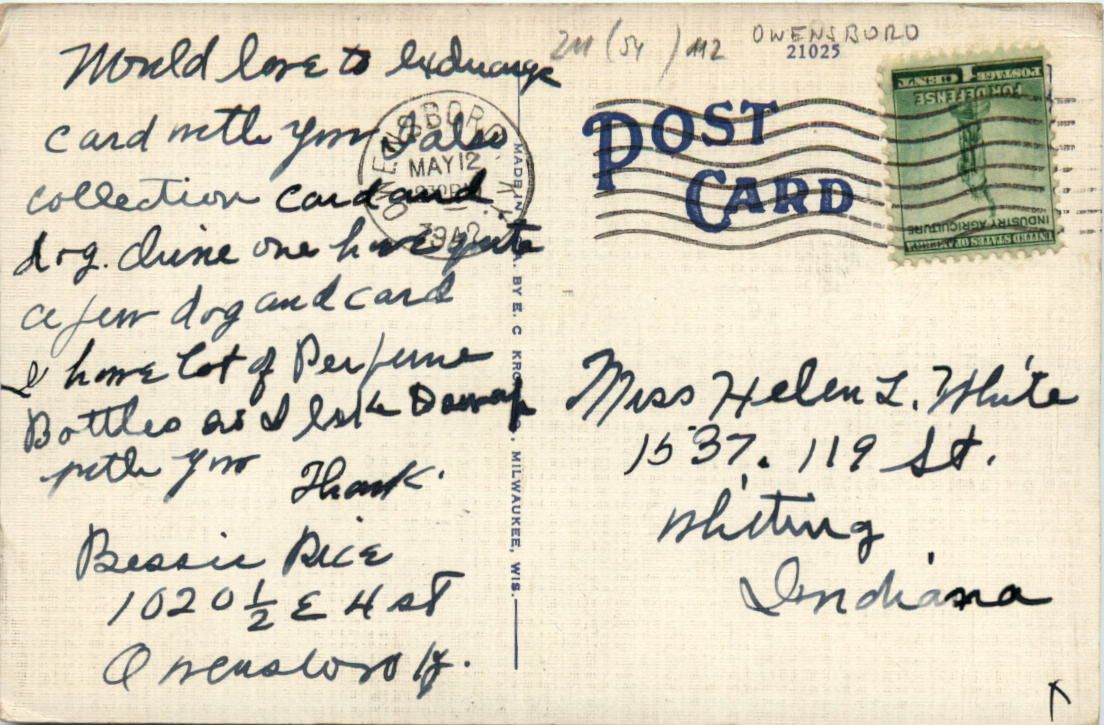 Would love to exchange
card with you & also
collection card and
dog. since one have quite
a few dog and card
I have lot of Perfume
Bottles as I like
with you
Thank.
Bessie Rice
1020 1/2 E 4 st
Owensboro Ky.
MADE IN BY E. C. KRO MILWAUKEE, WIS.
OWENSBORO
MAY 12
1942
OWENSBORO
21025
POST
CARD
1
POSTAGE CENT
FOR DEFENSE
INDUSTRY AGRICULTURE
UNITED STATES OF AMERICA
Miss Helen L. White
1537. 119 St.
Whiting
Indiana